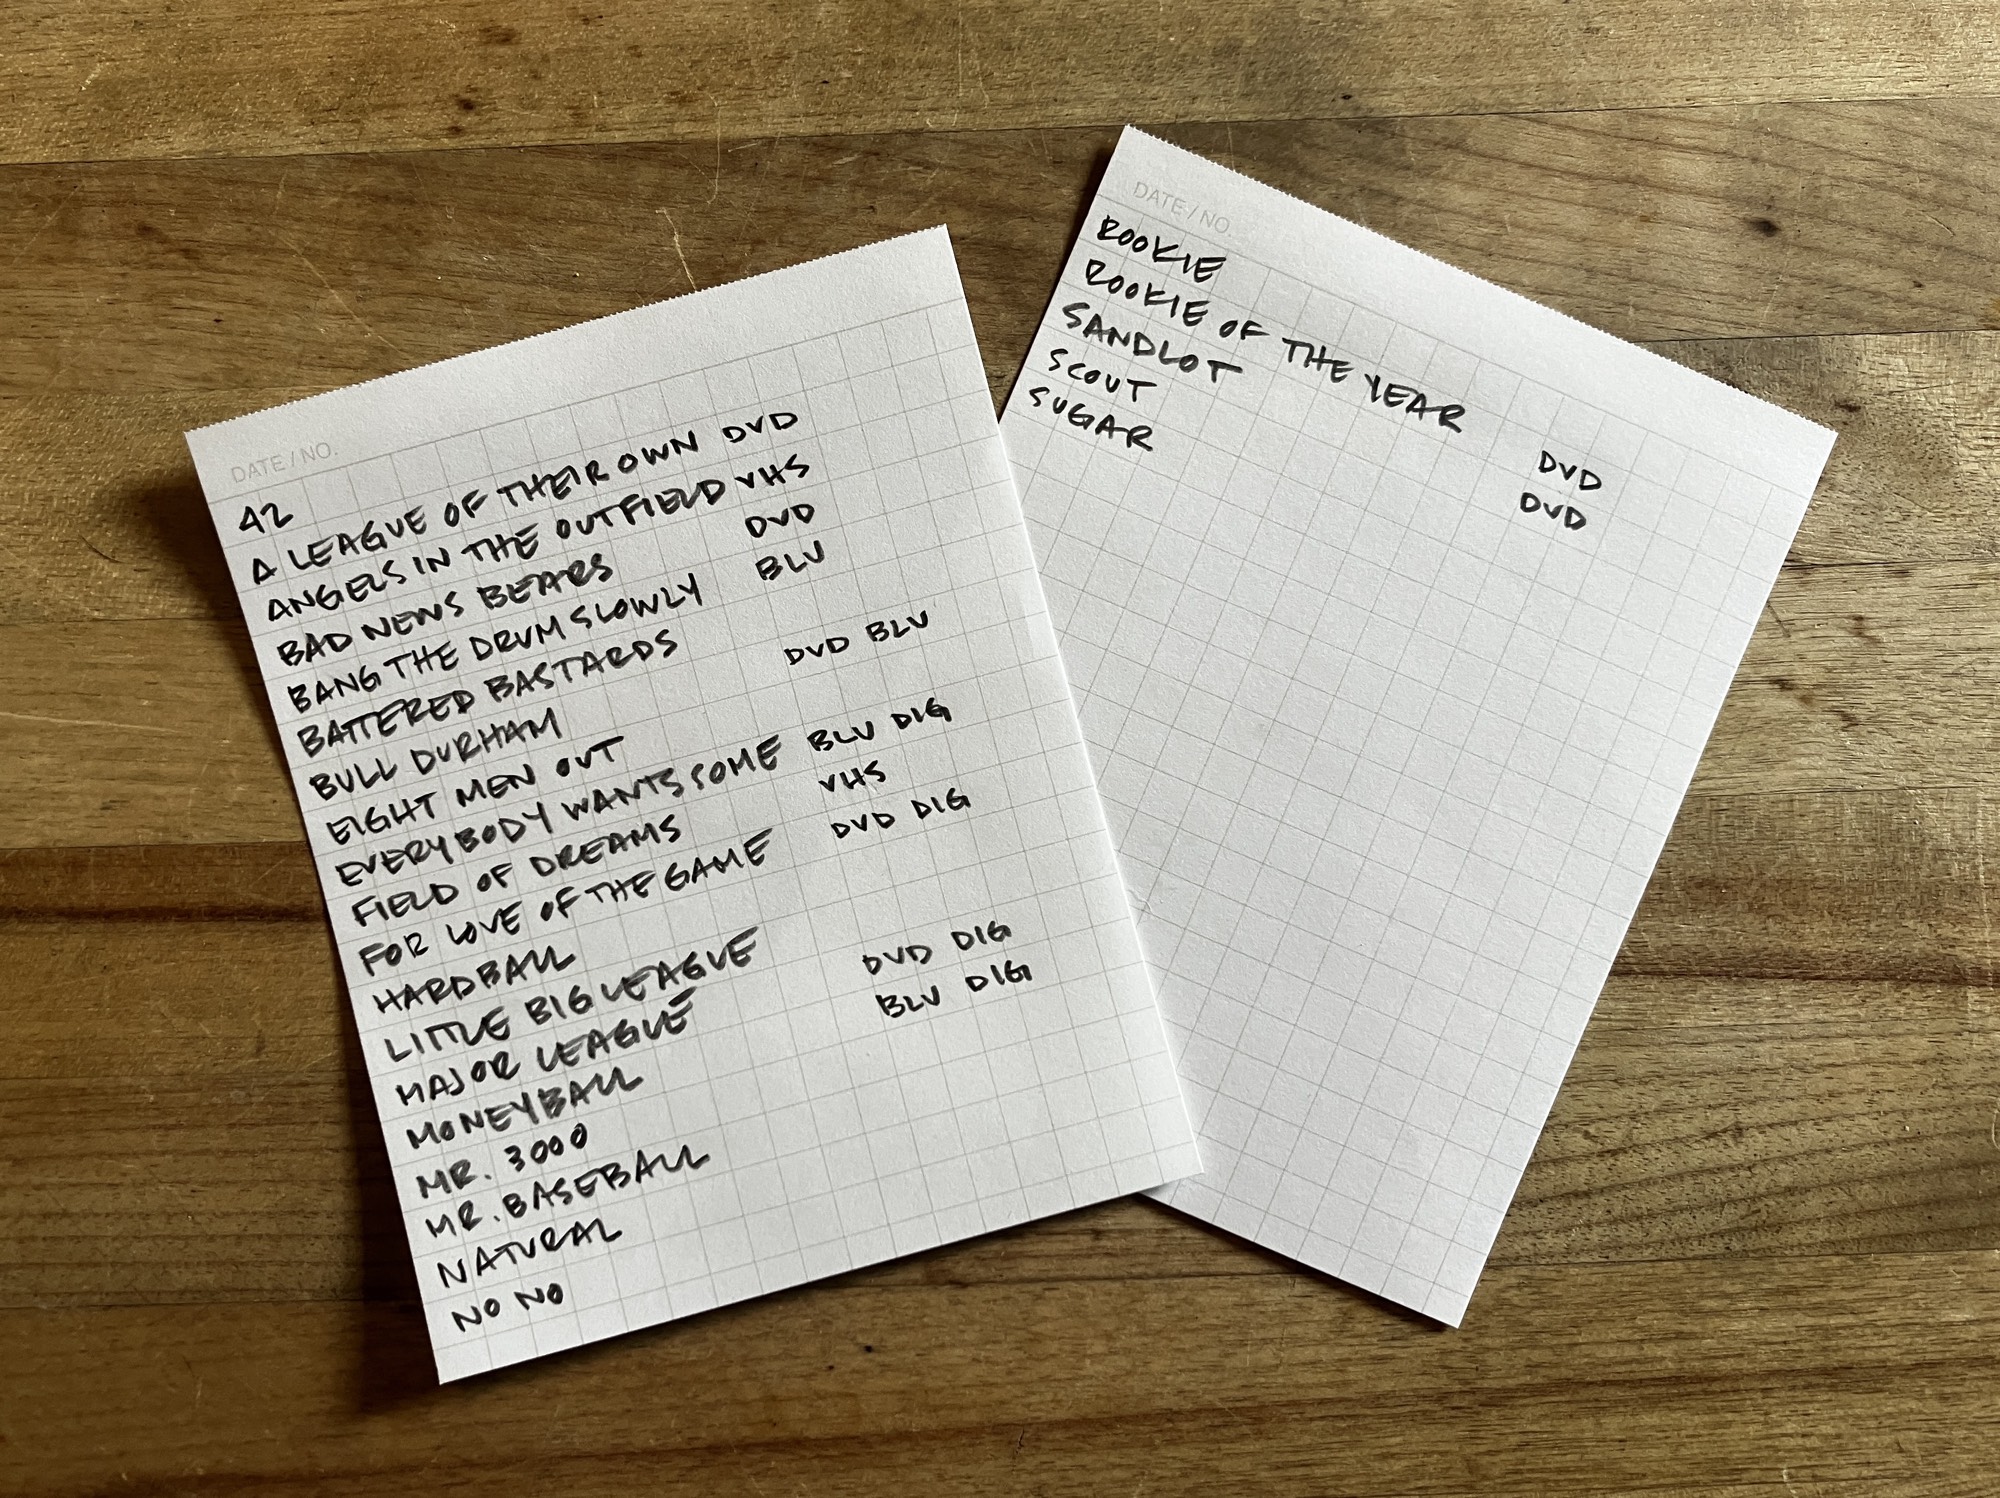 DATE / NO.
42
A LEAGUE OF THEIR OWN DVD
ANGELS IN THE OUTFIELD VHS
BAD NEWS BEARS DVD
BANG THE DRUM SLOWLY BLU
BATTERED BASTARDS
BULL DURHAM DVD BLU
EIGHT MEN OUT
EVERYBODY WANTS SOME BLU DIG
FIELD OF DREAMS VHS
FOR LOVE OF THE GAME DVD DIG
HARDBALL
LITTLE BIG LEAGUE
MAJOR LEAGUE DVD DIG
MONEYBALL BLU DIG
MR. 3000
MR. BASEBALL
NATURAL
NO NO
DATE / NO.
ROOKIE
ROOKIE OF THE YEAR DVD
SANDLOT DVD
SCOUT
SUGAR